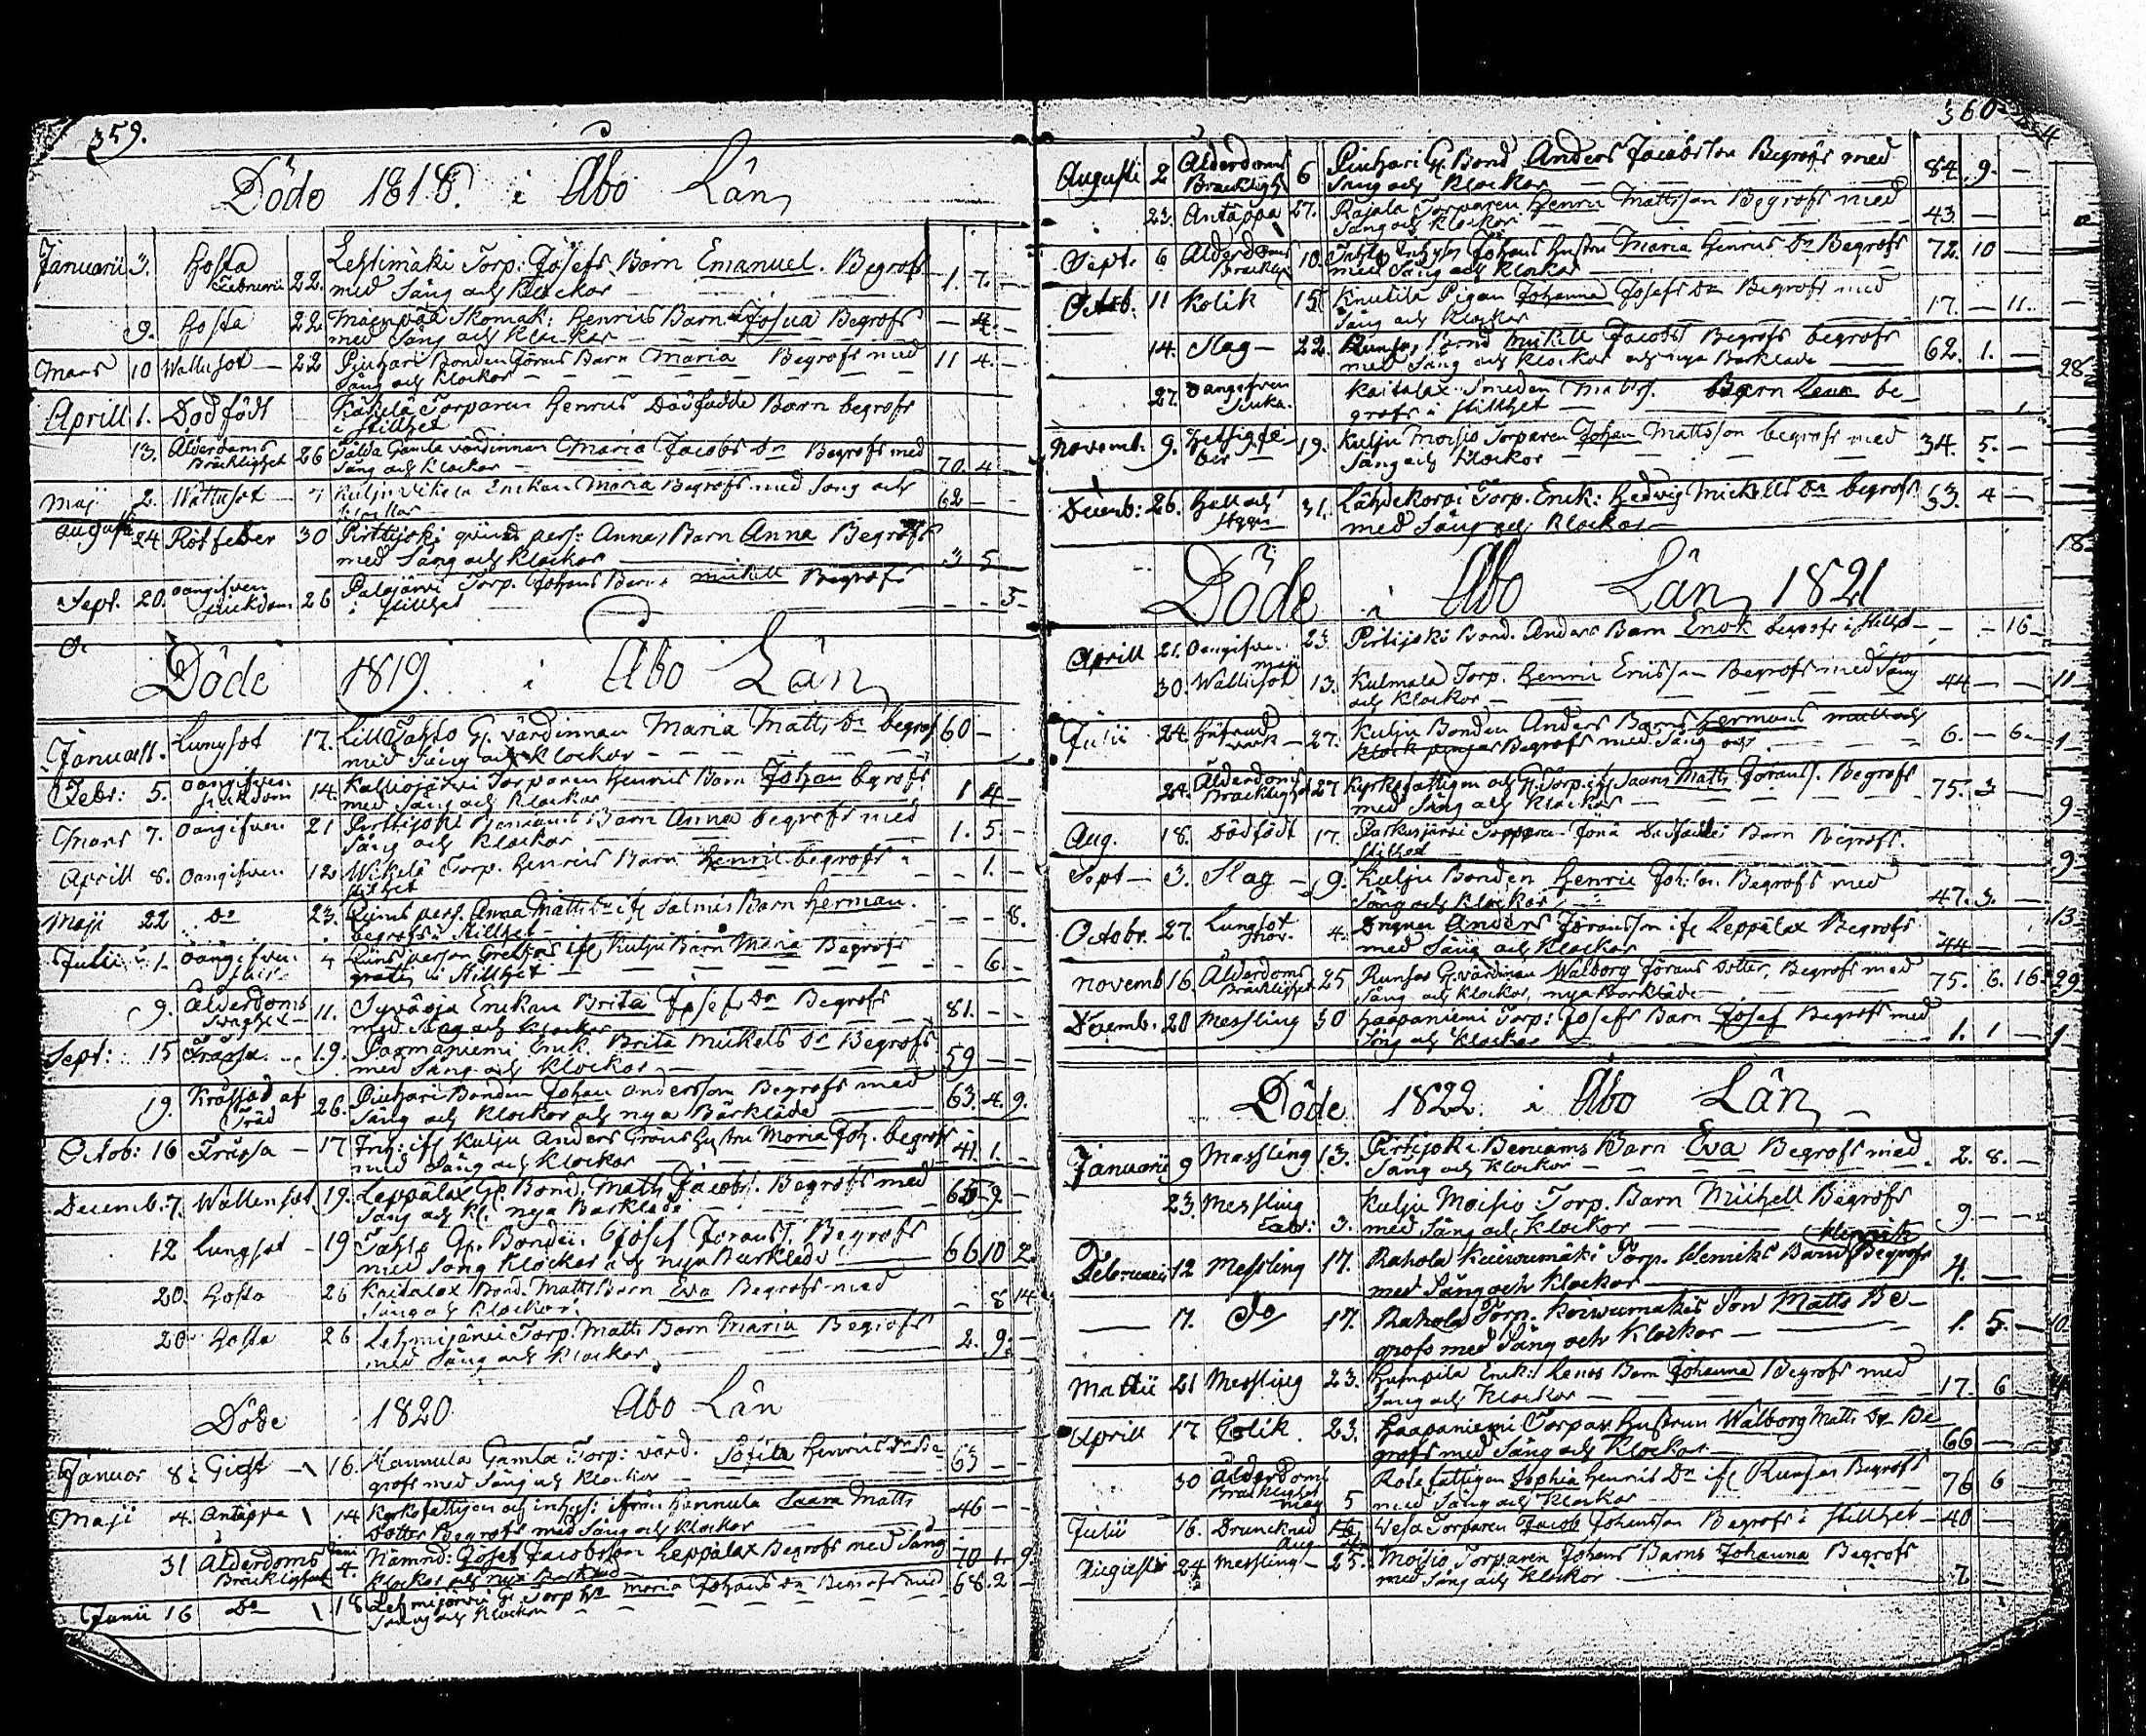 359.
Döde 1818. i Åbo Län
Januarii 3. Hosta 22. Lehtimäki Torp: Josefs Barn Emanuel. Begrofs 1. 7. —
Februarii med Sång och Klockor
9. Hosta 22 Skomak: Henrics Barn Josua Begrofs — 4. —
med Sång och Klockor
Mars 10 Wattusot — 22 Piuhari Bonden Görans Barn Maria Begrofs med 11 4. —
Sång och Klockor
Aprill 1. Dödfödt Torparen Henrics Dödfödde Barn begrofs
i stillhet
13. Ålderdoms 26 Gamla värdinnan Maria Jacobs Dr Begrofs med 70. 4
Bräcklighet Sång och Klockor
Maj 2. Wattusot — 7 Kulju Enkan Maria Begrofs med Sång och 62 —
Klockor
Augusti 24 Rötfeber 30 Pirttijoki pers: Annas Barn Anna Begrofs 3 5
med Sång och Klockor
Sept. 20. oangifven 26 Palojärvi Torp. Johans Barn Mickell Begrofs — — 5 —
sjukdom i stillhet
Döde 1819. i Åbo Län
Januarii 1. Lungsot 17. Lill Tahlo G. värdinnan Maria Matts Dr begrof 60 —
med Sång och Klockor
Febr: 5. oangifven 14. Kalliojärvi Torparen Henrics Barn Johan begrofs 1 4 —
sjukdom med Sång och Klockor
Mars 7. oangifven 21 Pirttijoki Beniams Barn Anna begrofs med 1. 5. —
Sång och Klockor
Aprill 8. oangifven 12 Wikelä Torp. Henrics Barn Henric begrofs i — 1. —
stillhet
Maji 22 Do 23. pers. Anna Matts Dr ifr Salmis Barn Herman. — — 8.
begrofs i stillhet
Julii 1. oangifven 4 person ifr Kulju Barn Maria Begrofs — 6. —
gratis i stillhet
9. Ålderdoms 11. Syväoja Enkan Brita Josefs Dr Begrofs 81. — —
Svaghet med Sång och Klockor
Sept: 15 Frässa — 19. Parmaniemi Enk. Brita Mickels Dr Begrofs 59 — —
med Sång och Klockor
19. Krossad af 26. Piuhari Bonden Johan Andersson Begrofs med 63. 4. 9.
Träd Sång och Klockor och nya Bårkläde
Octob: 16 Frässa — 17 Inh: ifr Kulju Anders Görans Hustru Maria Joh. begrofs 41. 1. —
med Sång och Klockor
Decemb. 7. Wattensot 19. Leppälax Gl. Bond. Matts Jacobs. Begrofs med 65 9 —
Sång och Kl. nya Barkläde
12 Lungsot — 19 Tahlo Gl. Bonden Josef Görans. Begrofs 66 10 2
med Sång Klockor och nya Barkläde
20. Hosta 26 Kaitalax Bond. Matts Barn Eva Begrofs med — 8 14
Sång och Klockor.
20 Hosta 26 Lehmijärvi Torp. Matts Barn Maria Begrofs 2. 9. —
med Sång och Klockor
Döde 1820 Åbo Län
Januar 8. Gigt — 16. Hannula Gamla Torp: värd. Sofila Henrics Dr Be 63 — —
grofs med Sång och Klockor
Maji 4. Antäppa 14 Kyrkofattigen och Inhys: ifrån Hannula Saara Matts 46 — —
Dotter Begrofs med Sång och Klockor
31 Ålderdoms Juni 4. Nämnd: Josef Jacobsson Leppälax Begrofs med Sång 70 1. 9
Bräcklighet Klockor och nya Barkläde
Junii 16 Do 18 Lehmijärvi Gl. Torp Maria Johans Dr Begrofs med 68. 2 —
Sång och Klockor
360
Augusti 2 Ålderdoms 6 Piuhari Gl. Bond Anders Jacobsson Begrofs med 84. 9. —
Bräcklighet Sång och Klockor
23. Antäppa 27. Rajala Torparen Henric Mattsson Begrofs med 43. —
Sång och Klockor
Sept. 6 Ålderdoms 10. Tahlo Inhys Johans Hustru Maria Henrics Dr Begrofs 72. 10 —
Bräckligh med Sång och Klockor
Octob: 11 Kolik 15 Knutila Pigan Johanna Josefs Dr Begrofs med 17. — 11.
Sång och Klockor
14. Slag — 22. Runsas Bond Mickell Jacobs Begrofs begrofs 62. 1. —
med Sång och Klockor och nya Barkläde
27. oangifven Kaitalax Smeden Matts. Barn Lena be-
Sjuka. grofs i stillhet
Novemb. 9. Hetsig fe- 19. Kulju Moisio Torparen Johan Mattsson begrofs med 34. 5. —
ber Sång och Klockor
Decemb: 26. Håll och 31. Lähdekorpi Torp. Enk: Hedvig Mickells Dr begrofs 53. 4 —
Stygn med Sång och Klockor
Döde i Åbo Län, 1821
Aprill 21. Oangifven 23. Pirttijoki Bond. Anders Barn Enok begrofs i stillhet — — 16 —
30. Wattusot Maji 13. Kulmala Torp. Henric Ericsson Begrofs med Sång 44 — —
och Klockor
Julii 24. 27. Kulju Bonden Anders Barns Hermans
Begrofs med Sång och 6. — 6 —
24. Ålderdoms 27 Kyrkofattigen och Gl. Torp. ifr Saaris Matts Görans. Begrofs 75. 3 —
Bräcklighet med Sång och Klockor
Aug. 18. Dödfödt 17. Parkusjärvi Göra Barn Begrofs.
Stillhet
Sept — 3. Slag — 9. Kulju Bonden Henric Joh:son Begrofs med 47. 3. —
Sång och Klockor
Octobr. 27. Lungsot 4. Drängen Anders Göransson ifr Leppälax Begrofs 44 —
Nov. med Sång och Klockor
Novemb 16. Ålderdoms 25 Runsas Gl. värdinnan Walborg Görans Dotter, Begrofs med 75. 6. 16
Bräcklighet Sång och Klockor, nya Barkläde
Decemb. 20 Messling 30 Haapaniemi Torp: Josefs Barn Josef Begrofs med 1. 1 —
Sång och Klockor
Döde 1822. i Åbo Län
Januarii 9 Messling 13. Pirttijoki Beniams Barn Eva Begrofs med 2. 8. —
Sång och Klockor
23. Messling Kulju Moisio Torp. Barn Michell Begrofs 9 — —
Febr: 3. med Sång och Klockor
Henrik
Februarii 12 Messling 17. Rahola Kuiwumäki Torp. Henriks Barn Begrofs 4. —
med Sång och Klockor
17. Do 17. Rahola Torp. Koiwumäkis Son Matts Be- 1. 5. —
grofs med Sång och Klockor
Martii 21 Messling 23. Humpila Enk: Lenas Barn Johanna Begrofs med 17. 6
Sång och Klockor
Aprill 17 Colik. 23. Haapaniemi Torpar Hustrun Walborg Matts Dr Be 66 —
grofs med Sång och Klockor
30 Ålderdoms Rotefattigen Sophia Henrics Dr ifr Runsas Begrofs 76 6
Bräcklighet May 5 med Sång och Klockor
Julii 16. Drunknad Wesa Torparen Jacob Johansson Begrofs i stillhet — 40 —
Augusti 24 Messling — 25. Moisio Torparen Johans Barns Johanna Begrofs 7. —
med Sång och Klockor